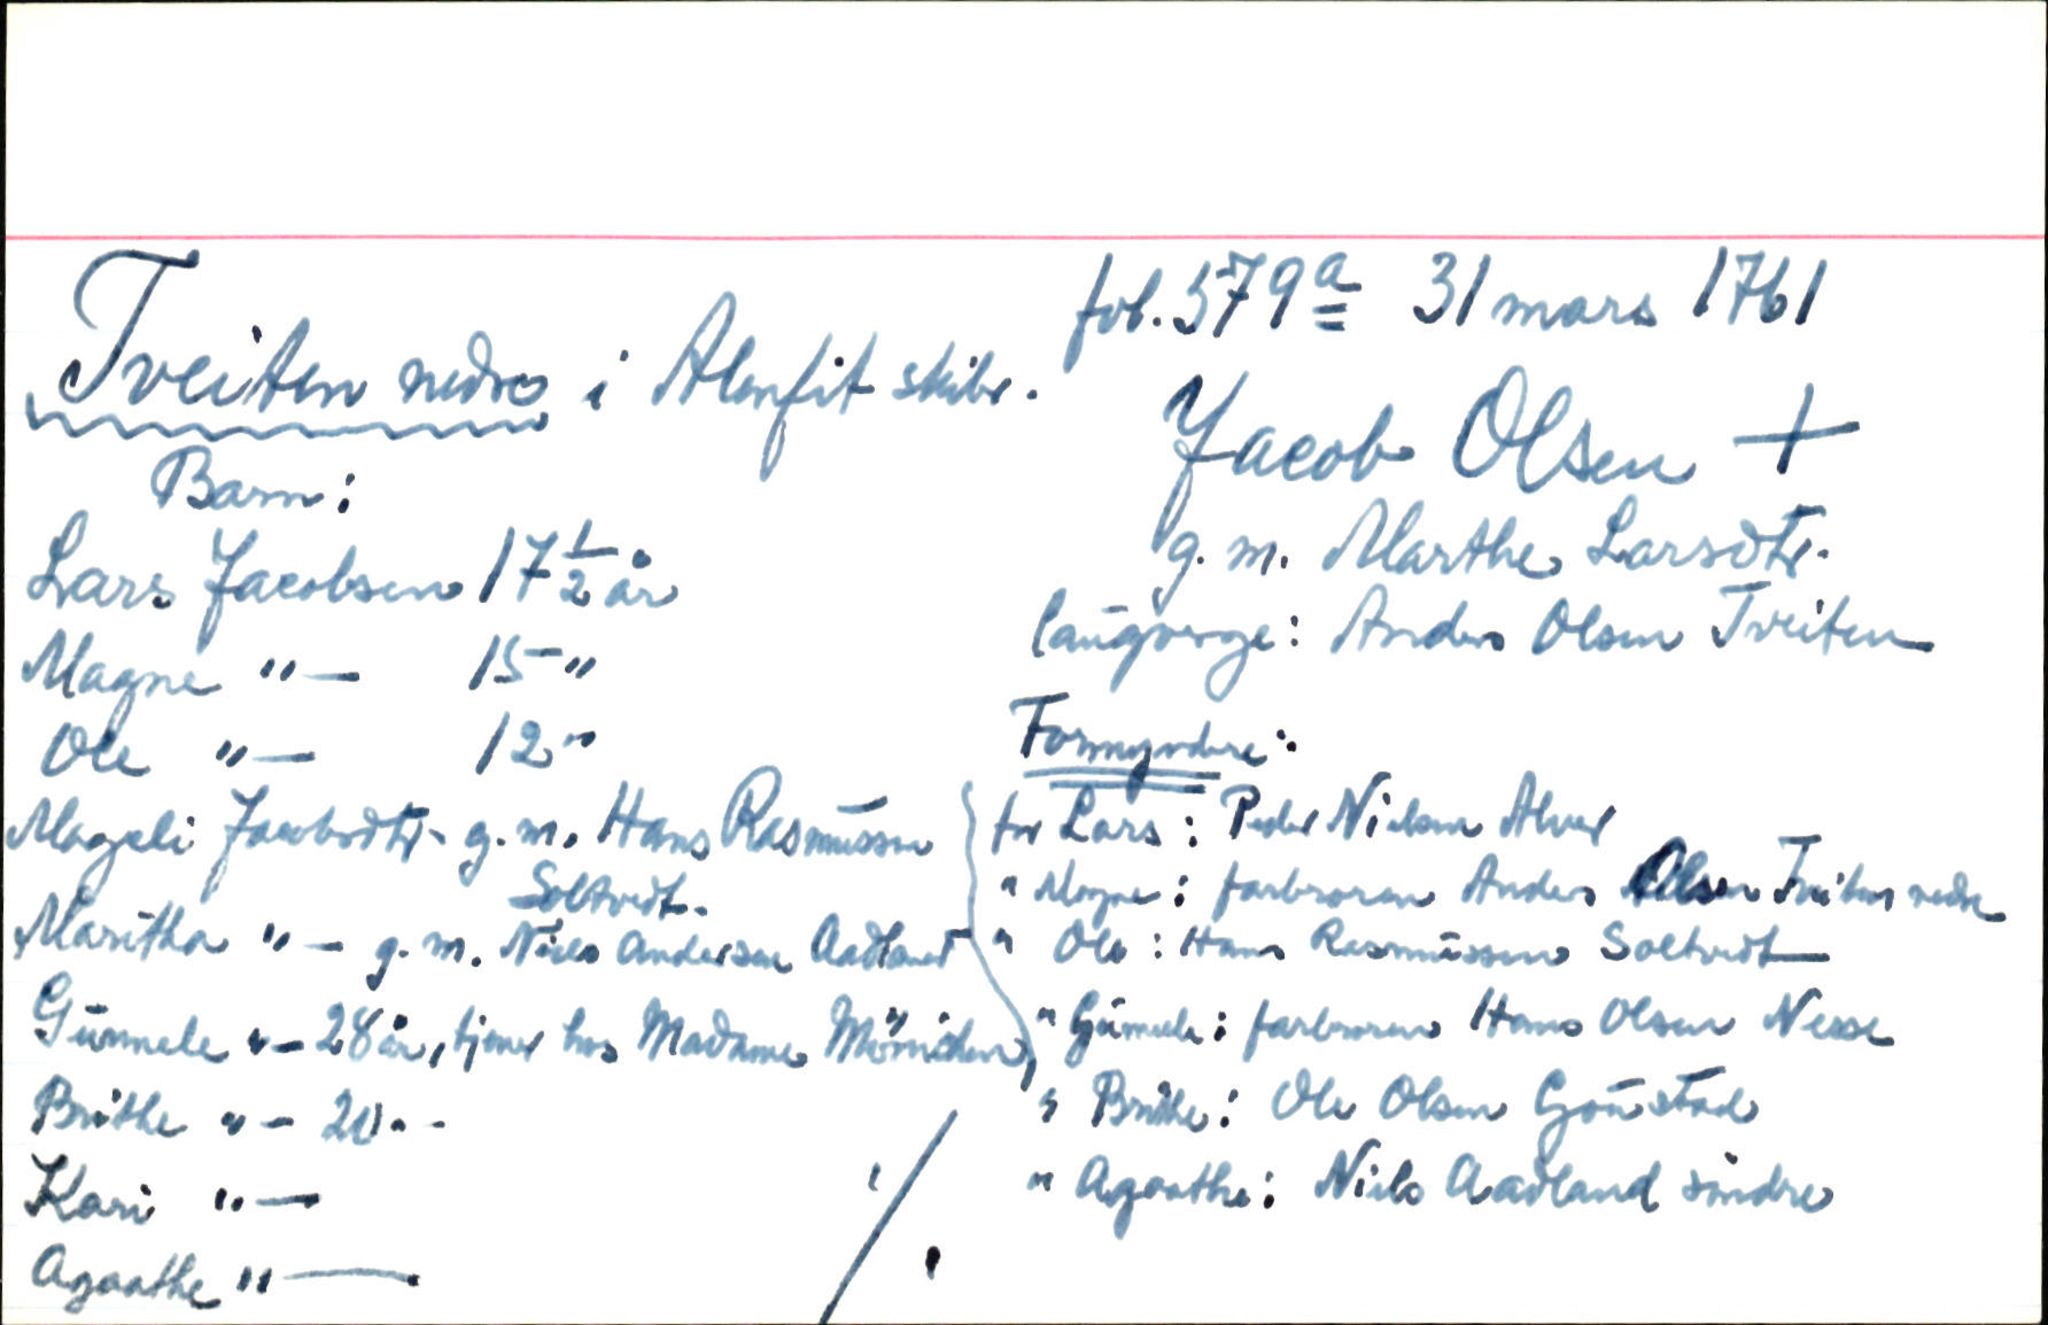 Tveiten nedre i Alenfit skibr.
fol. 579a 31 mars 1761
Jacob Olsen +
g. m. Marthe Larsdtr.
laugverge: Anders Olsen Tveiten
Barn:
Lars Jacobsen 17 1/2 år
Magne "— 15 — "
Ole "— 12 "
Mageli Jacobsdtr. g. m. Hans Rasmussen
Soltvedt.
Maritha "— g. m. Niels Andersen Aadland
Gunnele "— 28 år, tjener hos Madame
Brithe "— 20 "-
Kari "—
Agaathe "—
Formyndere:
for Lars: Peder Nielsen Alver
" Magne: farbroren Anders Olsen Tveiten nedre
" Ole: Hans Rasmussen Soltvedt
" Gunnele: farbroren Hans Olsen Nesse
" Brithe: Ole Olsen Gaustad
" Agaathe: Niels Aadland søndre